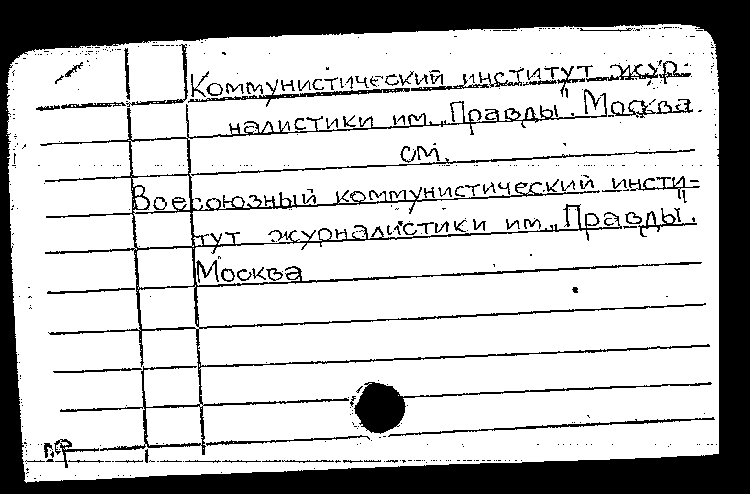 Коммунистический институт жур-
налистики им. „Правды". Москва.
см.
Всесоюзный коммунистический инсти-
тут журналистики им. „Правды".
Москва